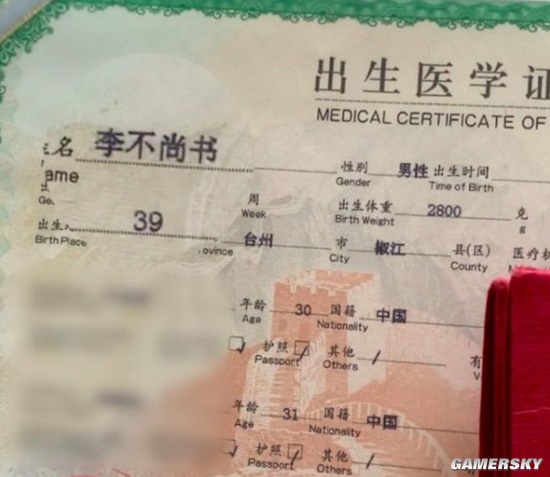 出生医学证
MEDICAL CERTIFICATE OF
名 李不尚书 性别 男性 出生时间
ame Gender Time of Birth
出 周 出生体重 2800 克
Ge Week Birth Weight g
出生 39 台州 市 椒江 县(区) 医疗机
Birth Place ovince City County
年龄 30 国籍 中国
Age Nationality
护照 其他 有
Passport Others V
年龄 31 国籍 中国
Age Nationality
护照 其他
Passport Others
GAMERSKY